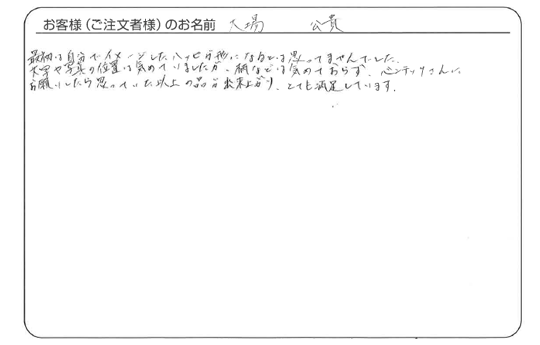 お客様（ご注文者様）のお名前 大場 公貴
最初は自分でイメージしたハッピが形になるとは思ってませんでした。
文字や写真の位置は決めていましたが、柄などは決めておらず、さんに
お願いしたら思っていた以上の品が出来上がり、とても満足しています。